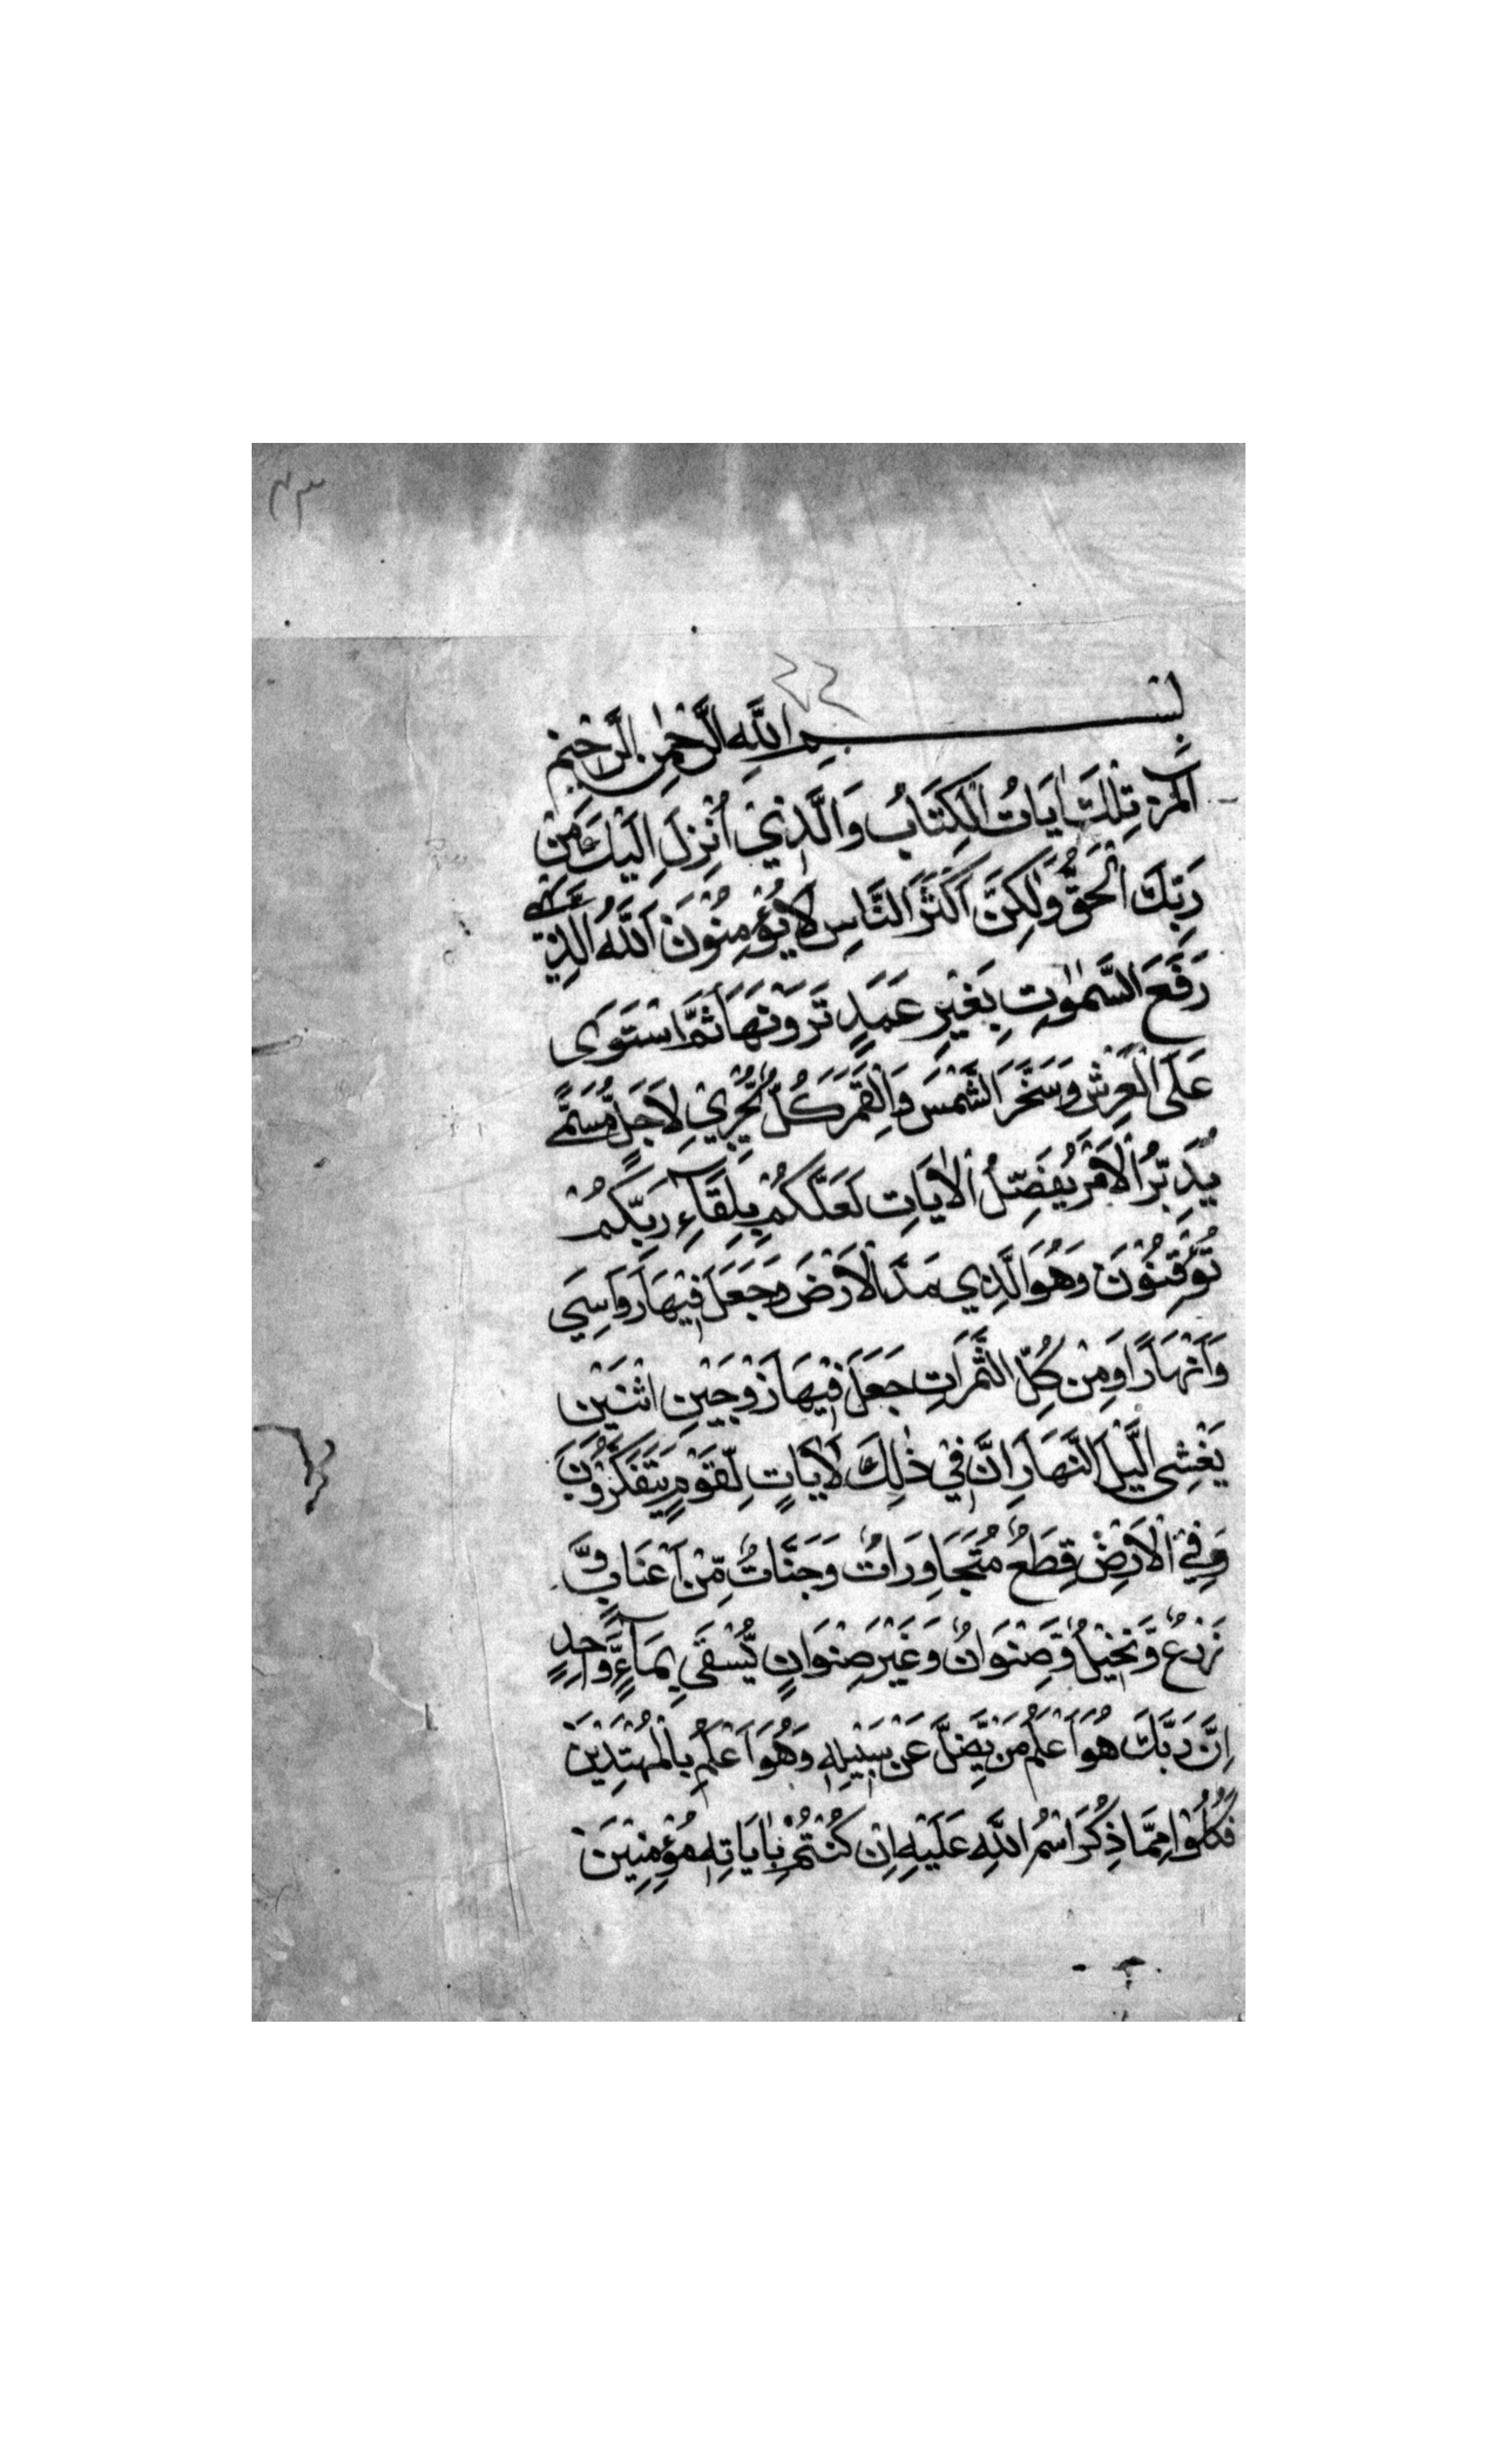 ٤٣
٤٤
بِسْمِ اللَّهِ الرَّحْمٰنِ الرَّحِيْمِ
الٓمّرٰ تِلْكَ اٰيَاتُ الْكِتَابُ وَالَّذِيْ اُنْزِلَ اِلَيْكَ مِنْ
رَبِّكَ الْحَقُّ وَلٰكِنَّ اَكْثَرَ النَّاسِ لَا يُؤْمِنُوْنَ اَللّٰهُ الَّذِيْ
رَفَعَ السَّمٰوٰتِ بِغَيْرِ عَمَدٍ تَرَوْنَهَا ثُمَّ اسْتَوَى
عَلَى الْعَرْشِ وَسَخَّرَ الشَّمْسَ وَالْقَمَرَ كُلٌّ يَّجْرِيْ لِاَجَلٍ مُّسَمًّى
يُدَبِّرُ الْاَمْرَ يُفَصِّلُ الْاٰيَاتِ لَعَلَّكُمْ بِلِقَآءِ رَبِّكُمْ
تُوْقِنُوْنَ وَهُوَ الَّذِي مَدَّ الْاَرْضَ وَجَعَلَ فِيْهَا رَوَاسِيَ
وَاَنْهَارًا وَمِنْ كُلِّ الثَّمَرَاتِ جَعَلَ فِيْهَا زَوْجَيْنِ اثْنَيْنِ
يُغْشِى الَّيْلَ النَّهَارَ اِنَّ فِيْ ذٰلِكَ لَاٰيَاتٍ لِّقَوْمٍ يَّتَفَكَّرُوْنَ
وَفِي الْاَرْضِ قِطَعٌ مُتَجَاوِرَاتٌ وَجَنَّاتٌ مِّنْ اَعْنَابٍ وَّ
زَرْعٌ وَّنَخِيْلٌ وَّصِنْوَانٌ وَغَيْرَ صِنْوَانٍ يُّسْقَى بِمَآءٍ وَّاحِدٍ
اِنَّ رَبَّكَ هُوَ اَعْلَمُ مَنْ يَّضِلُّ عَنْ سَبِيْلِهٖ وَهُوَ اَعْلَمُ بِالْمُهْتَدِيْنَ
فَكُلُوْا مِمَّا ذُكِرَ اسْمُ اللّٰهِ عَلَيْهِ اِنْ كُنْتُمْ بِاٰيَاتِهٖ مُؤْمِنِيْنَ